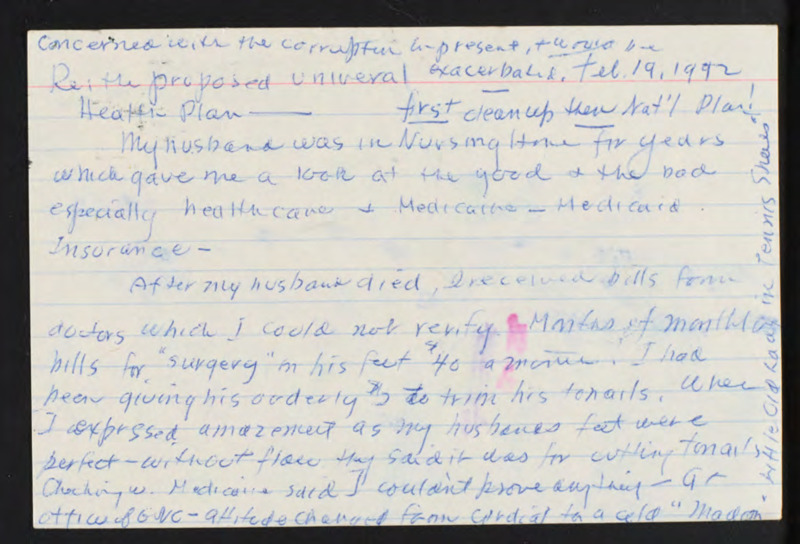 Concerned with the corruption in present, + would be
Re: the proposed univeral exacerbated. Feb. 19, 1992
Health Plan — first cleanup then Nat'l Plan!
My husband was in Nursing Home for years
which gave me a look at the good + the bad
especially healthcare + Medicaine — Medicaid.
Insurance —
After my husband died, I received bills from
doctors which I could not verify. Months of monthly
bills for "surgery" on his feet $40 a month. I had
been giving his orderly to trim his tonails. When
I expressed amazement as my husbands feet were
perfect — without flaw they said it was for cutting tonails
Checking w. Medicaine said I couldn't prove anything —
office of — attitude changed from cordial to a cold "Madam"
"Little Old Lady in Tennis Shoes"